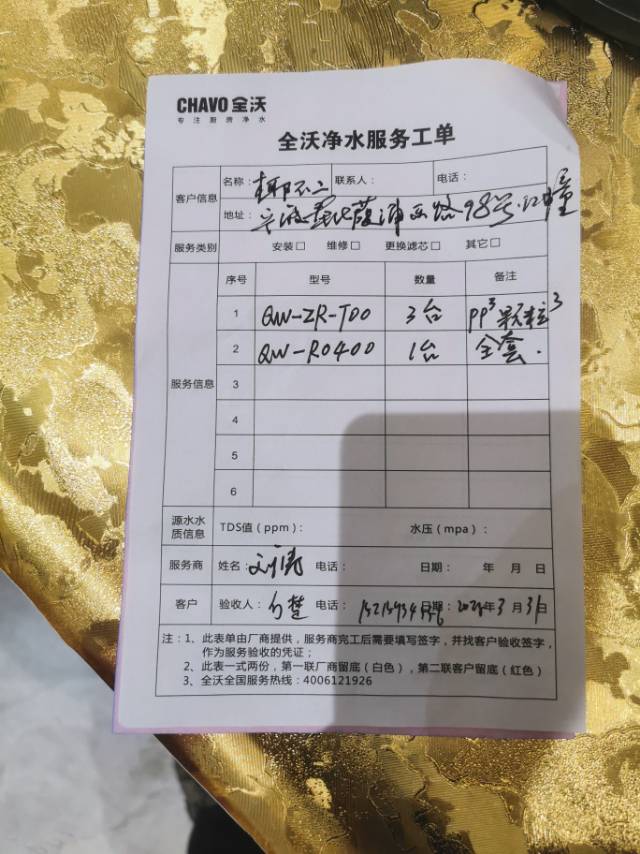 CHAVO 全沃
专注厨房净水
全沃净水服务工单
客户信息
名称： 联系人： 电话：
地址： 98号
服务类别 安装□ 维修□ 更换滤芯□ 其它□
服务信息
序号 型号 数量 备注
1 QW-ZR-T00 3台 PP³颗粒³
2 QW-RO400 1台 全套.
3
4
5
6
源水水质信息 TDS值（ppm）： 水压（mpa）：
服务商 姓名： 电话： 日期： 年 月 日
客户 验收人： 电话： 日期： 年3月31日
注：1、此表单由厂商提供，服务商完工后需要填写签字，并找客户验收签字，
作为服务验收的凭证；
2、此表一式两份，第一联厂商留底（白色），第二联客户留底（红色）
3、全沃全国服务热线：4006121926